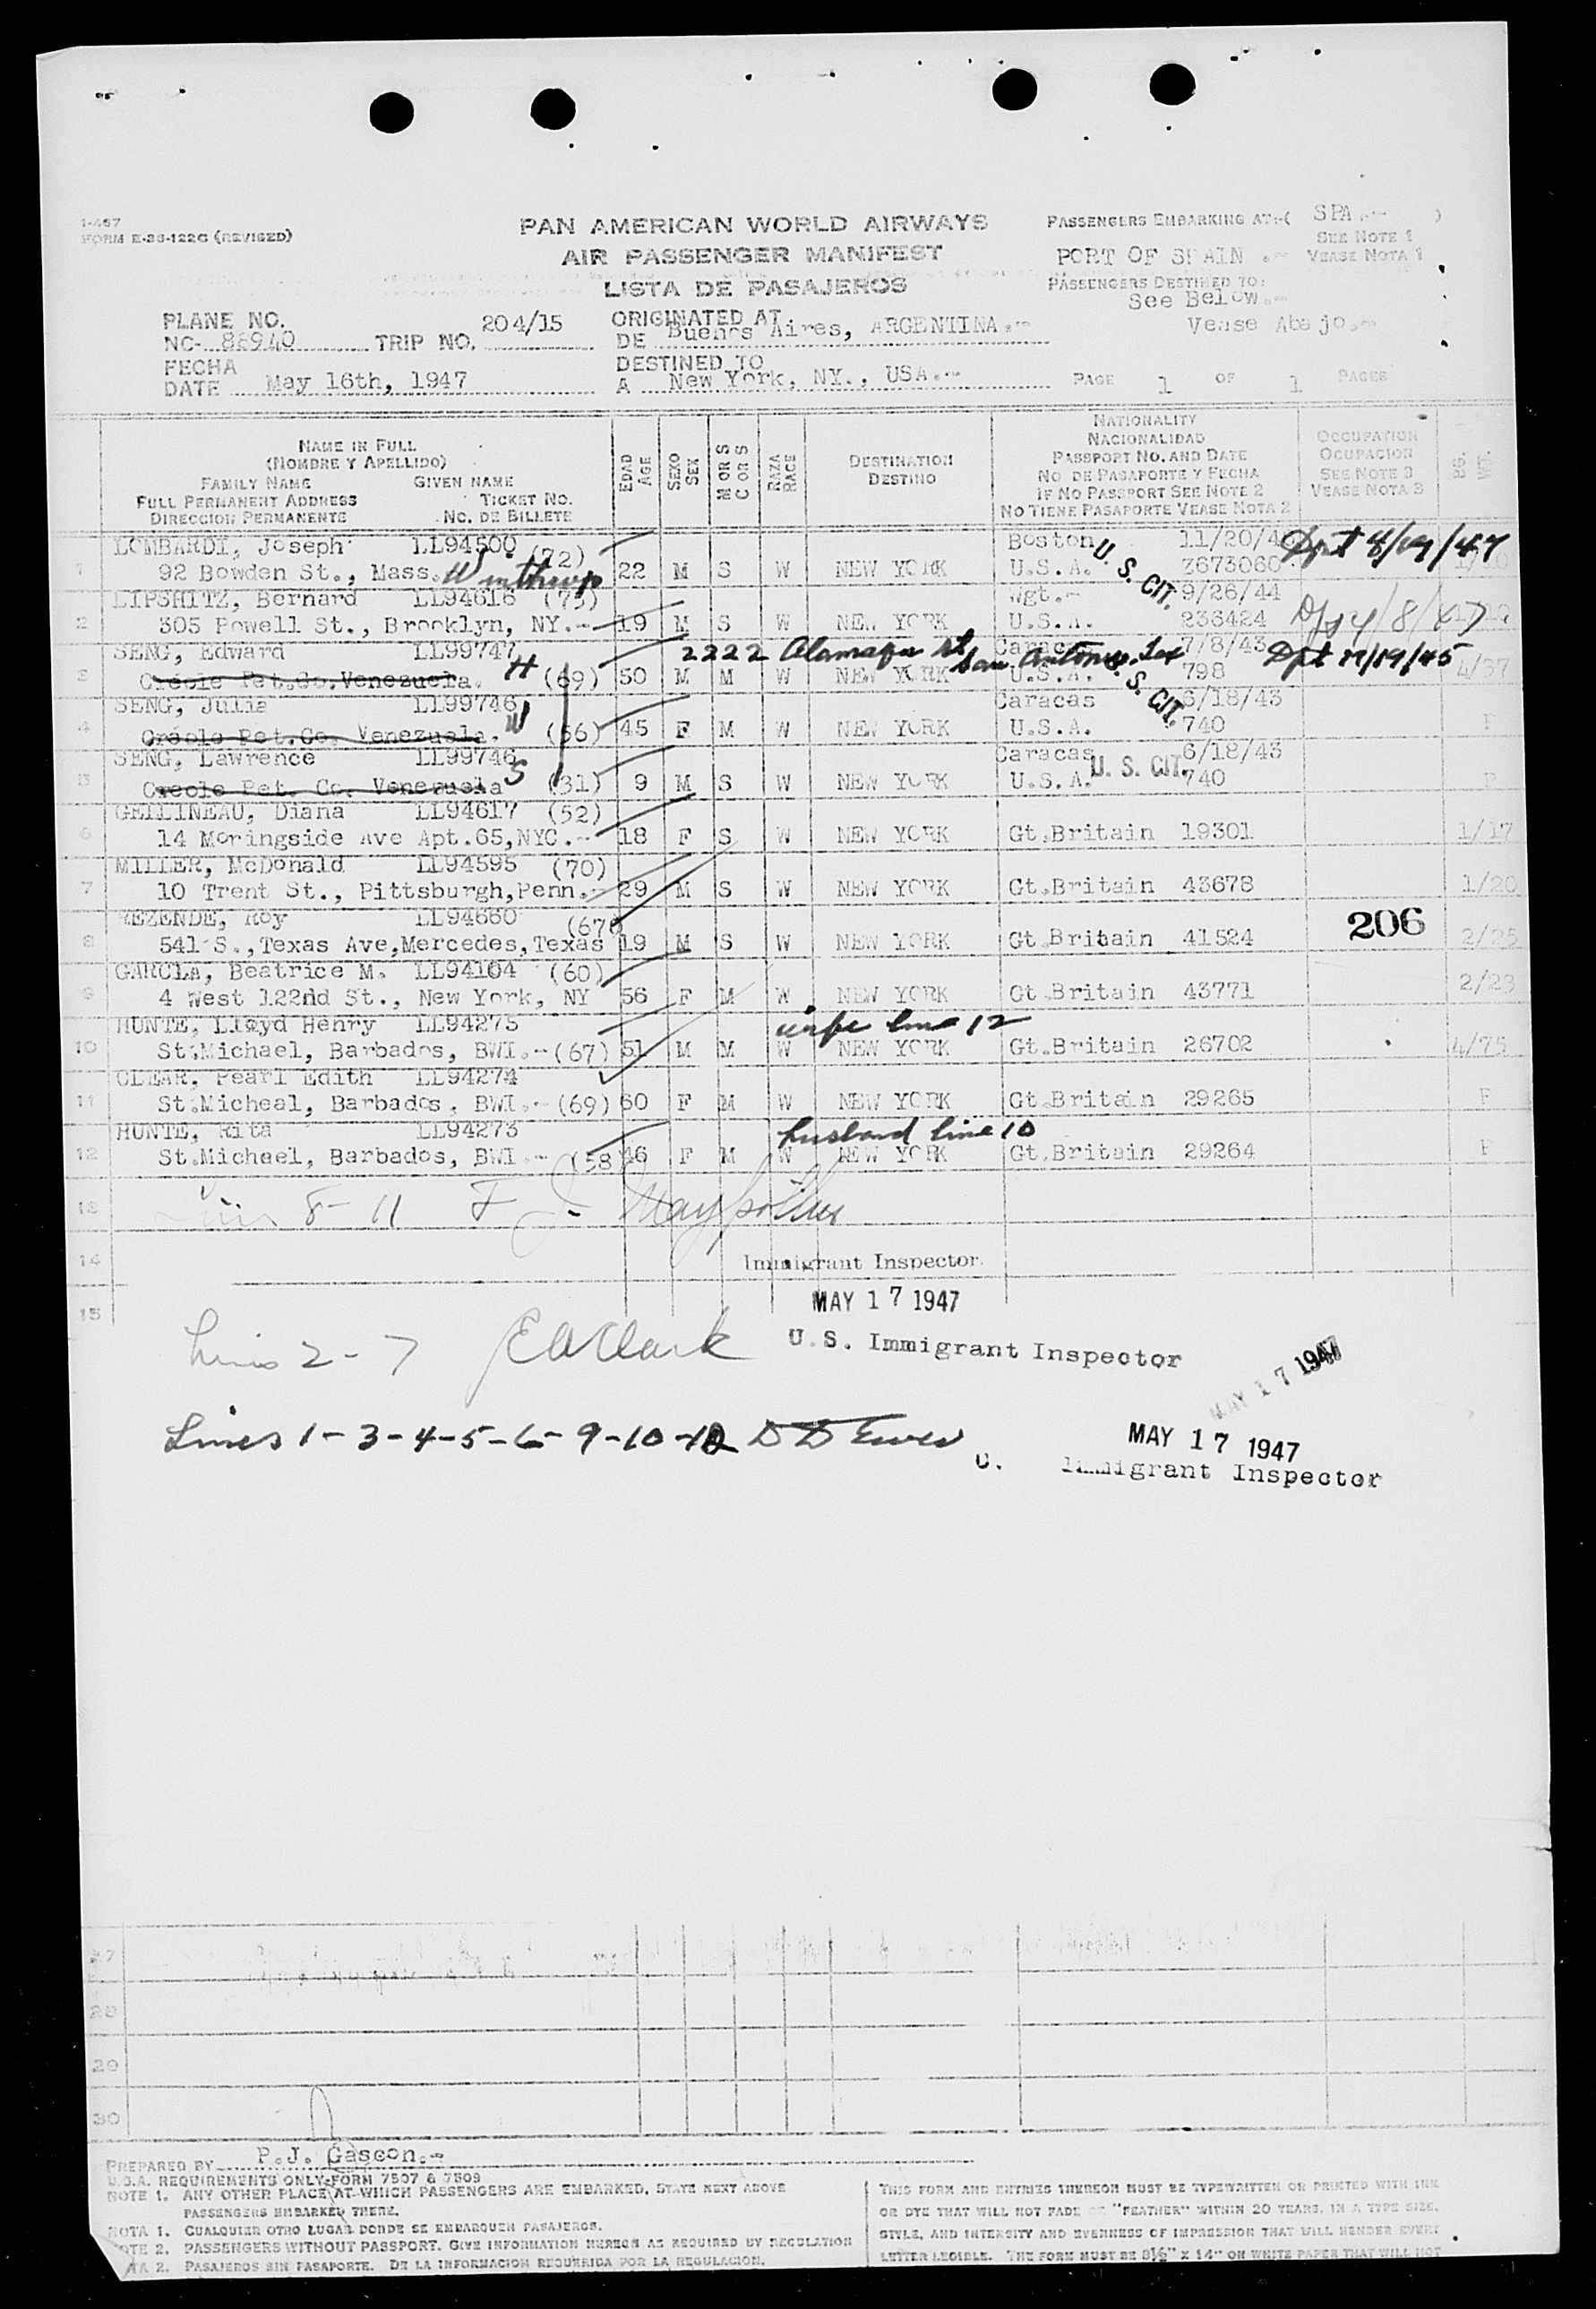 1-457
FORM E-23-122C (REVISED)
PAN AMERICAN WORLD AIRWAYS
AIR PASSENGER MANIFEST
LISTA DE PASAJEROS
PASSENGERS EMBARKING AT:-( SPA.- )
SEE NOTE 1
PORT OF SPAIN .- VEASE NOTA 1
PASSENGERS DESTINED TO:
See Below.-
Vease Abajo.-
PLANE NO.
NC- 88940 TRIP NO. 204/15
ORIGINATED AT
DE Buenos Aires, ARGENTINA.-
FECHA
DATE May 16th, 1947
DESTINED TO
A New York, NY., USA.-
PAGE 1 OF 1 PAGES
NAME IN FULL
(NOMBRE Y APELLIDO)
FAMILY NAME GIVEN NAME
FULL PERMANENT ADDRESS TICKET NO.
DIRECCION PERMANENTE NO. DE BILLETE
EDAD AGE
SEXO SEX
M OR S C OR S
RAZA RACE
DESTINATION
DESTINO
NATIONALITY
NACIONALIDAD
PASSPORT NO. AND DATE
NO DE PASAPORTE Y FECHA
IF NO PASSPORT SEE NOTE 2
NO TIENE PASAPORTE VEASE NOTA 2
OCCUPATION
OCUPACION
SEE NOTE 3
VEASE NOTA 3
BG. WT.
LOMBARDI, Joseph LL94500 (72) Boston 11/20/4 Dpt 8/19/47
1 92 Bowden St., Mass. Winthrop 22 M S W NEW YORK U.S.A. 3673060
U. S. CIT.
LIPSHITZ, Bernard LL94616 (75) Wgt.- 9/26/44
2 305 Powell St., Brooklyn, NY.- 19 M S W NEW YORK U.S.A. 236424
SENG, Edward LL99747 2222 Alamaqu St San Antonio. Tex Caracas 7/8/43 Dpt 11/19/45
3 Creole Pet.Co.Venezuela. H (69) 50 M M W NEW YORK U.S.A. 798 4/37
U. S. CIT.
SENG, Julia LL99746 Caracas 6/18/43
4 Creole Pet.Co. Venezuela. W (56) 45 F M W NEW YORK U.S.A. 740 F
SENG, Lawrence LL99746 Caracas 6/18/43
5 Creole Pet. Co. Venezuela S (31) 9 M S W NEW YORK U.S.A. U. S. CIT. 740 F
GELLINEAU, Diana LL94617 (52)
6 14 Moringside Ave Apt.65,NYC.- 18 F S W NEW YORK Gt.Britain 19301 1/17
MILLER, McDonald LL94595 (70)
7 10 Trent St., Pittsburgh,Penn.- 29 M S W NEW YORK Gt.Britain 43678 1/20
REZENDE, Roy LL94660 (67) 206
8 541 S.,Texas Ave,Mercedes,Texas 19 M S W NEW YORK Gt.Britain 41524 2/25
GARCIA, Beatrice M. LL94104 (60)
9 4 West 122nd St., New York, NY 56 F M W NEW YORK Gt.Britain 43771 2/23
HUNTE, Lloyd Henry LL94275 wife line 12
10 St.Michael, Barbados, BWI.-(67) 51 M M W NEW YORK Gt.Britain 26702 4/75
CLEAR, Pearl Edith LL94274
11 St.Micheal, Barbados, BWI.-(69) 60 F M W NEW YORK Gt.Britain 29265 F
HUNTE, Rita LL94273 husband line 10
12 St.Michael, Barbados, BWI.- (58) 46 F M W NEW YORK Gt.Britain 29264 F
13 8-11
14 Immigrant Inspector.
15 MAY 17 1947
Lines 2-7 E A Clark U.S. Immigrant Inspector
MAY 17 1947
Lines 1-3-4-5-6-9-10-12
MAY 17 1947
Immigrant Inspector
27
28
29
30
PREPARED BY P.J. Gascon.-
U.S.A. REQUIREMENTS ONLY-FORM 7507 & 7509
NOTE 1. ANY OTHER PLACE AT WHICH PASSENGERS ARE EMBARKED, STATE NEXT ABOVE
PASSENGERS EMBARKED THERE.
NOTA 1. CUALQUIER OTRO LUGAR DONDE SE EMBARQUEN PASAJEROS.
NOTE 2. PASSENGERS WITHOUT PASSPORT. GIVE INFORMATION HEREON AS REQUIRED BY REGULATION
NOTA 2. PASAJEROS SIN PASAPORTE. DE LA INFORMACION REQUERIDA POR LA REGULACION.
THIS FORM AND ENTRIES THEREON MUST BE TYPEWRITTEN OR PRINTED WITH INK
OR DYE THAT WILL NOT FADE OR "FEATHER" WITHIN 20 YEARS, IN A TYPE SIZE,
STYLE, AND INTENSITY AND EVENNESS OF IMPRESSION THAT WILL RENDER EVERY
LETTER LEGIBLE. THE FORM MUST BE 8½" X 14" ON WHITE PAPER THAT WILL NOT